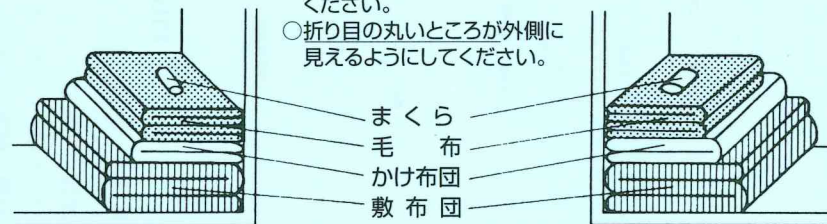 ください。
○折り目の丸いところが外側に
見えるようにしてください。
まくら
毛布
かけ布団
敷布団